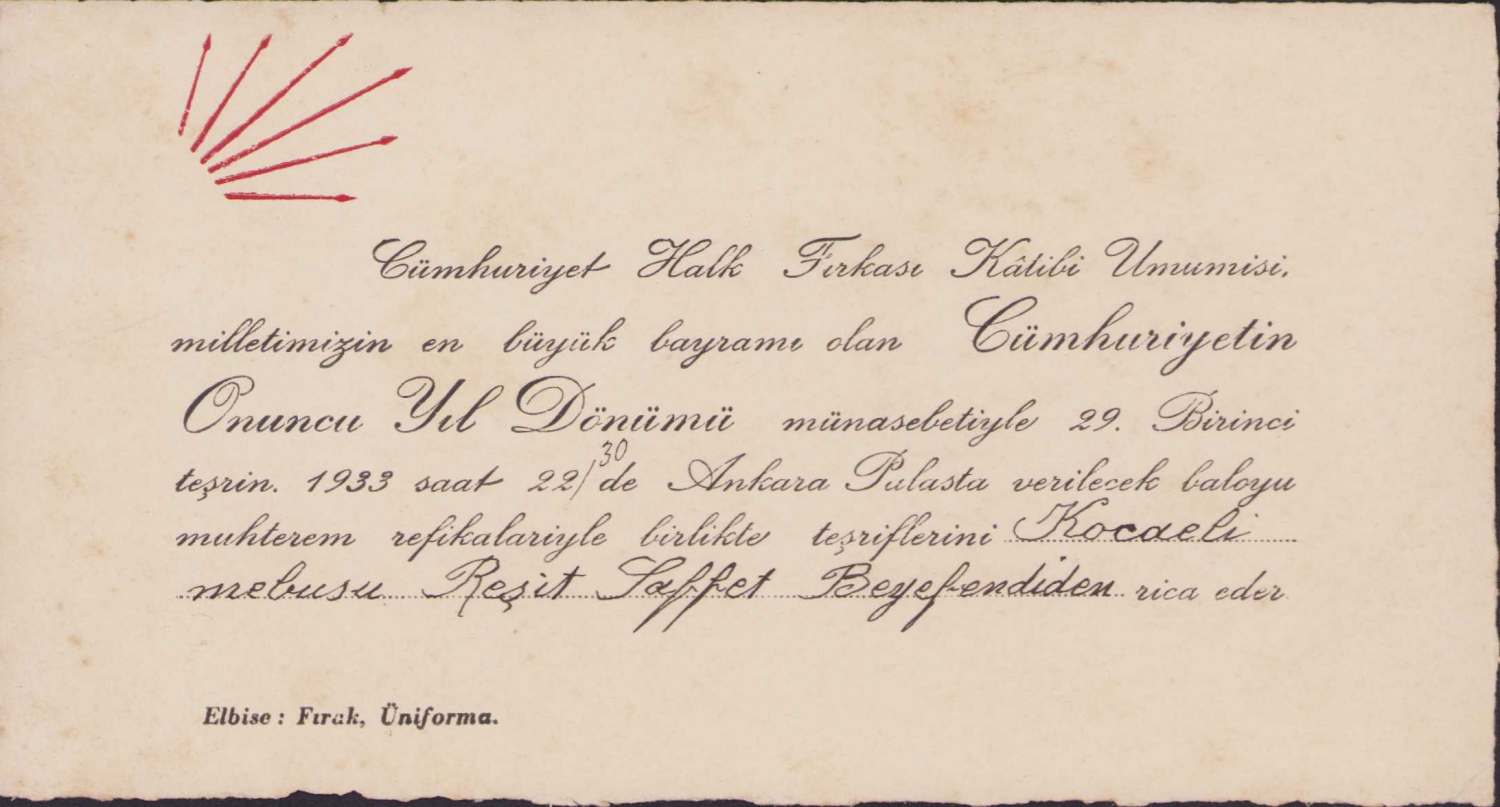 Cümhuriyet Halk Fırkası Kâtibi Umumisi.
milletimizin en büyük bayramı olan Cümhuriyetin
Onuncu Yıl Dönümü münasebetiyle 29. Birinci
teşrin. 1933 saat 22/30 de Ankara Palasta verilecek baloyu
muhterem refikalariyle birlikte teşriflerini Kocaeli
mebusu Reşit Saffet Beyefendiden rica eder
Elbise : Fırak, Üniforma.